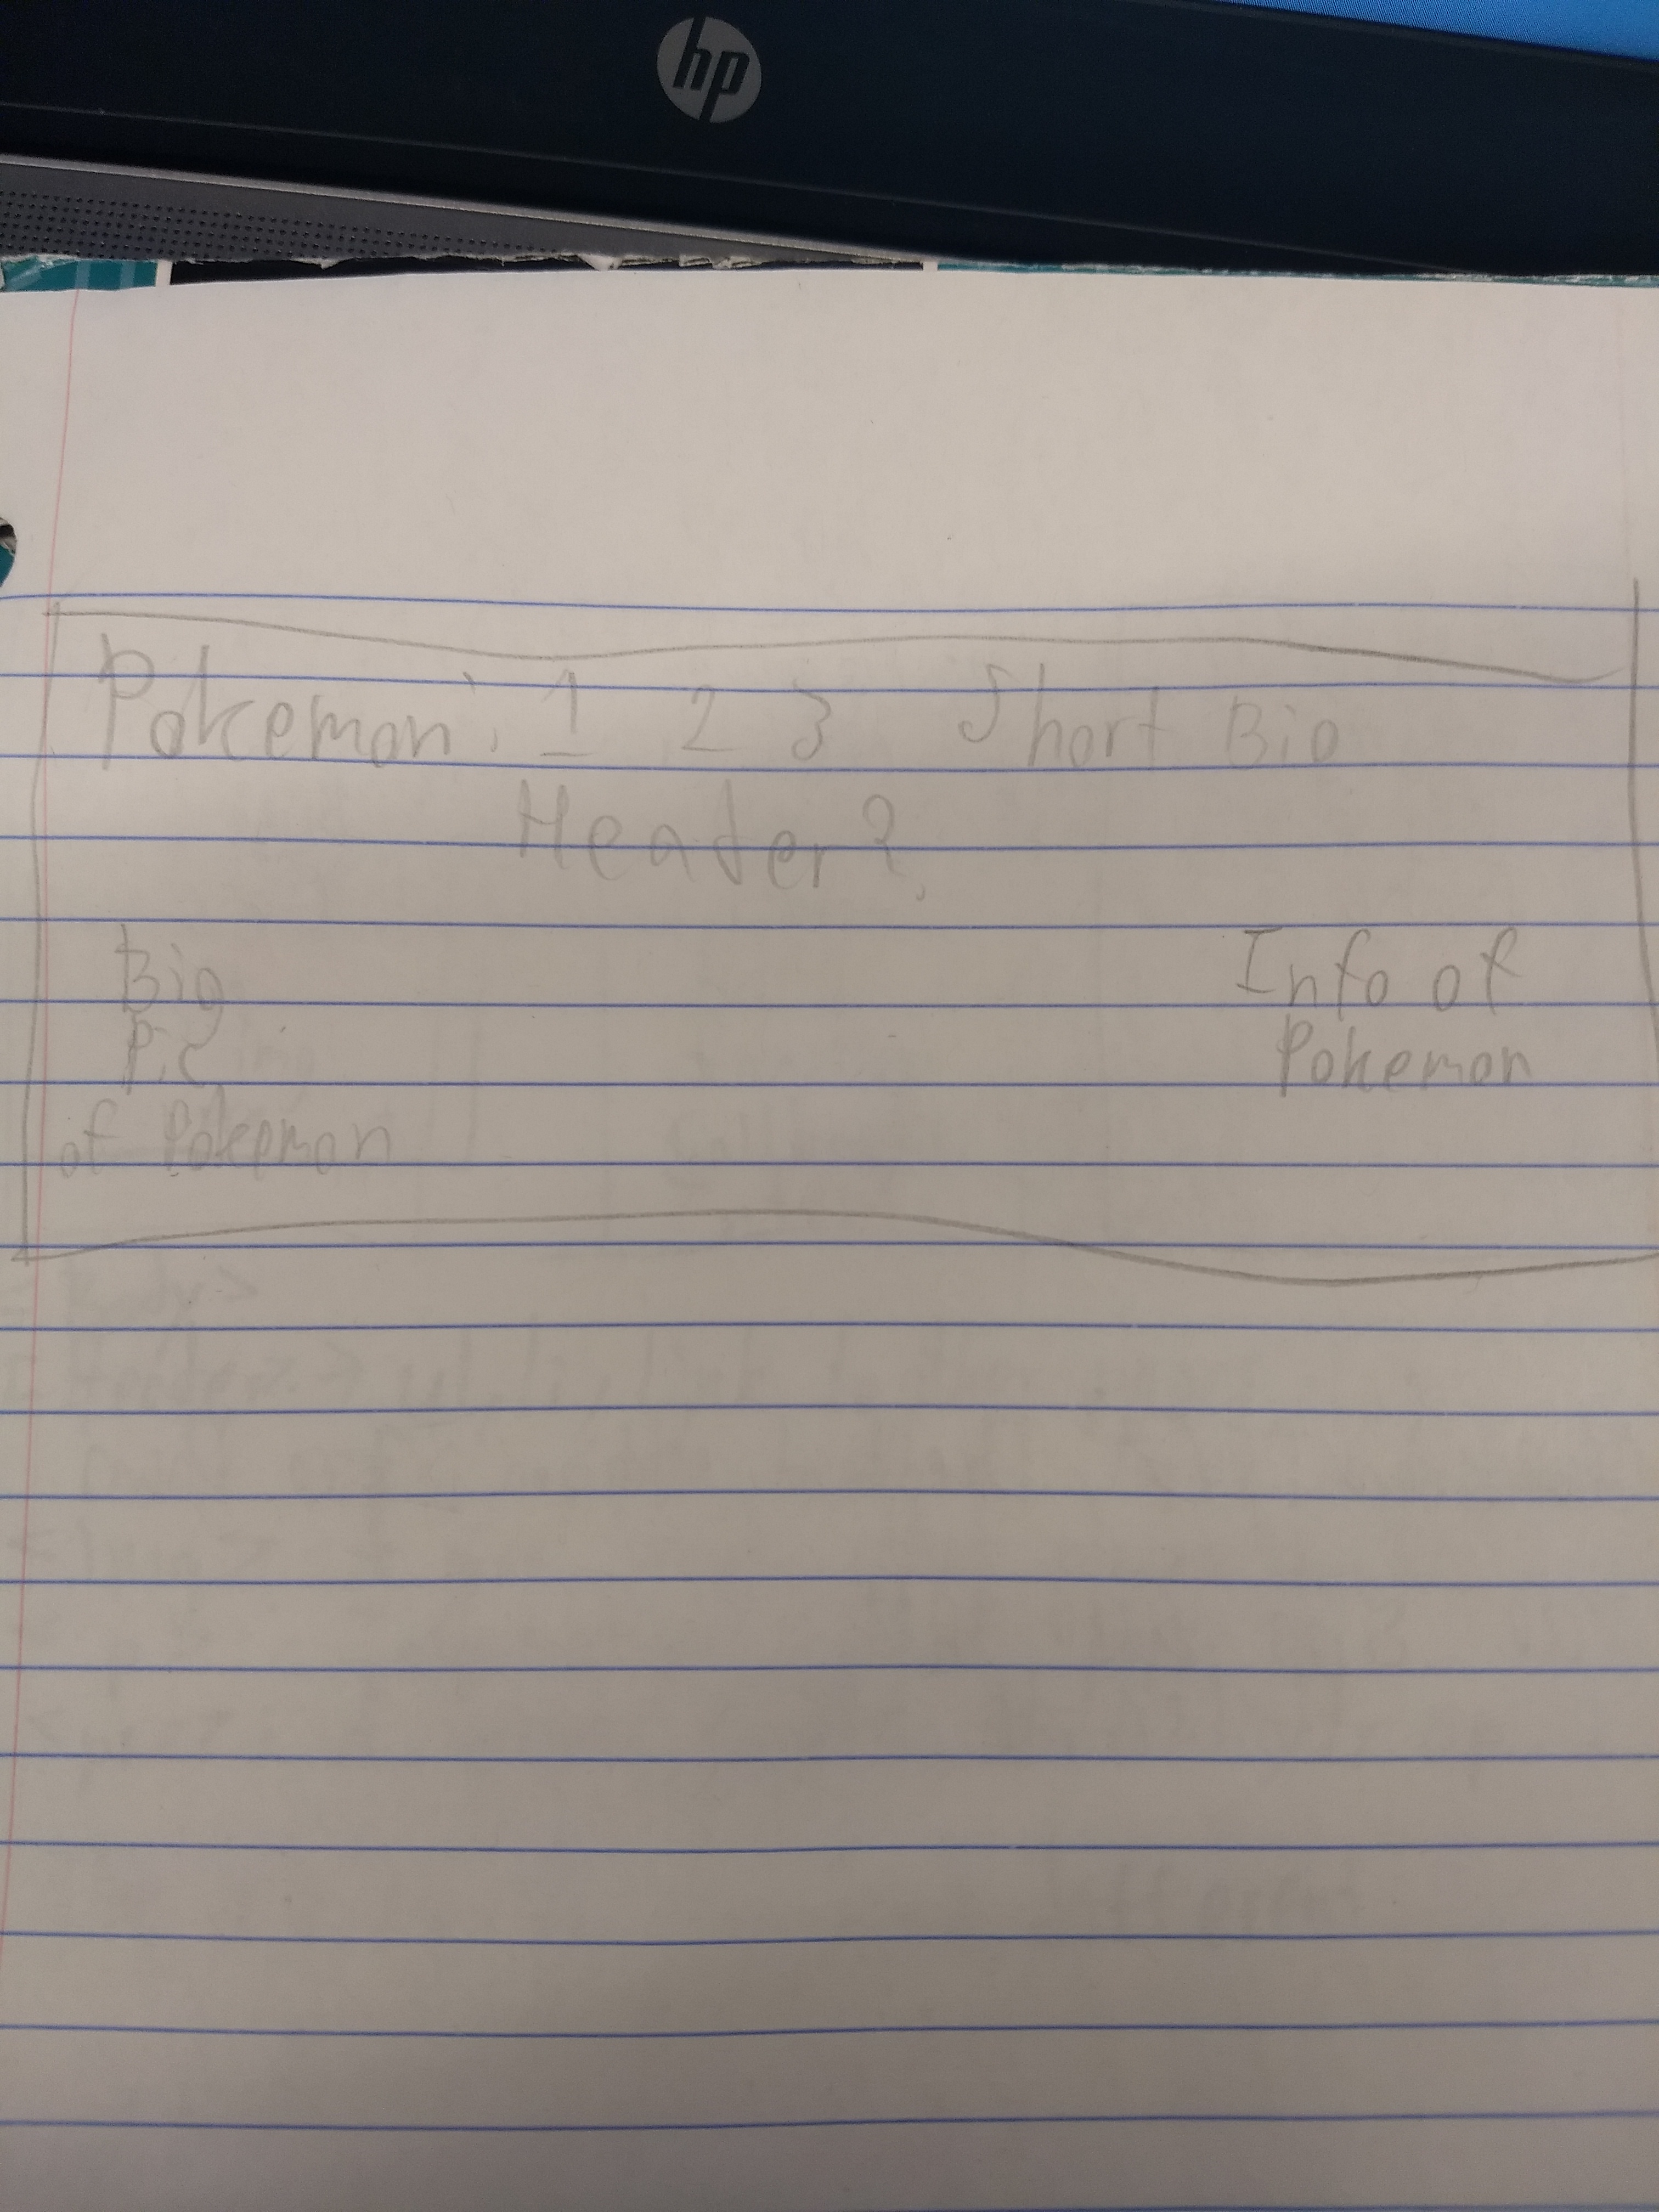 hp
Pokemon: 1 2 3 Short Bio
Header?
Big
Pic
of Pokemon
Info of
Pokemon